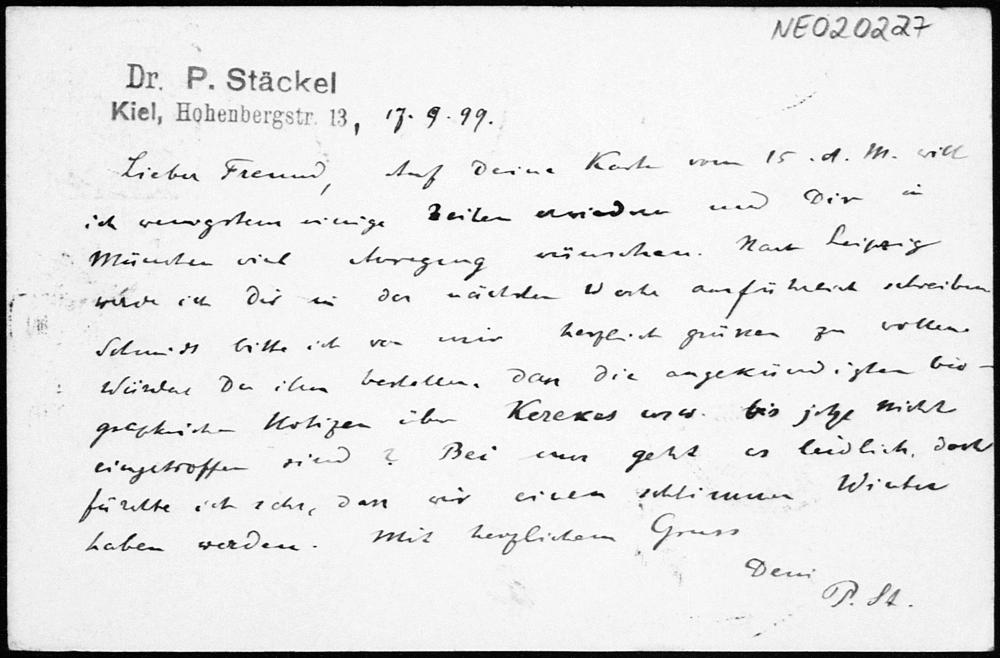 NE020227
Dr. P. Stäckel
Kiel, Hohenbergstr. 13, 17.9.99.
Lieber Freund, Auf Deine Karte vom 15. d. M. will
ich wenigstens einige Zeilen erwiedern und Dir in
München viel Anregung wünschen. Nach Leipzig
werde ich Dir in der nächsten Woche ausführlich schreiben
Schmidt bitte ich von mir herzlich grüssen zu wollen.
Würdest Du ihm bestellen, dass die angekündigten bio-
graphischen Notizen über Kerekes usw. bis jetzt nicht
eingetroffen sind? Bei uns geht es leidlich, doch
fürchte ich sehr, dass wir einen schlimmen Winter
haben werden. Mit herzlichem Gruss
Dein
P. St.